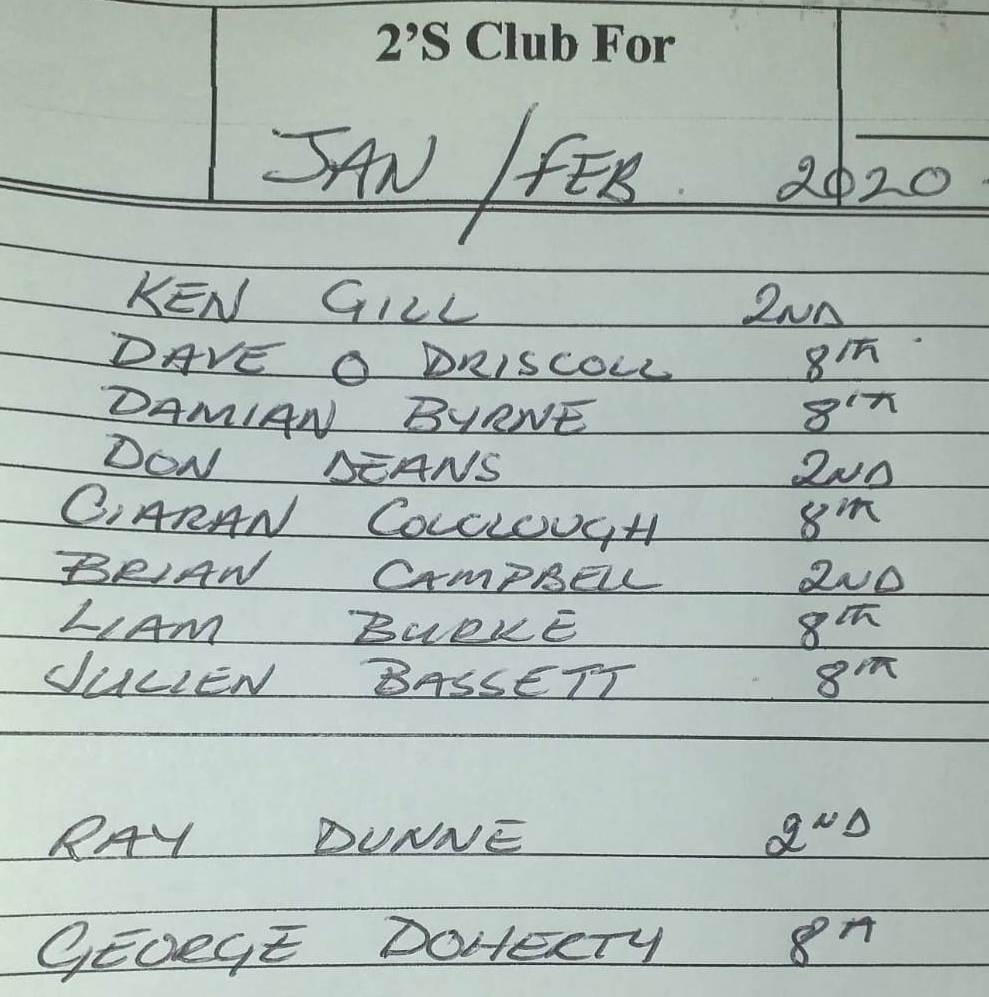 2'S Club For
JAN / FEB. 2020
KEN GILL 2ND
DAVE O DRISCOLL 8TH
DAMIAN BYRNE 8TH
DON DEANS 2ND
CIARAN COLCLOUGH 8TH
BRIAN CAMPBELL 2ND
LIAM BURKE 8TH
JULIEN BASSETT 8TH
RAY DUNNE 2ND
GEORGE DOHERTY 8TH